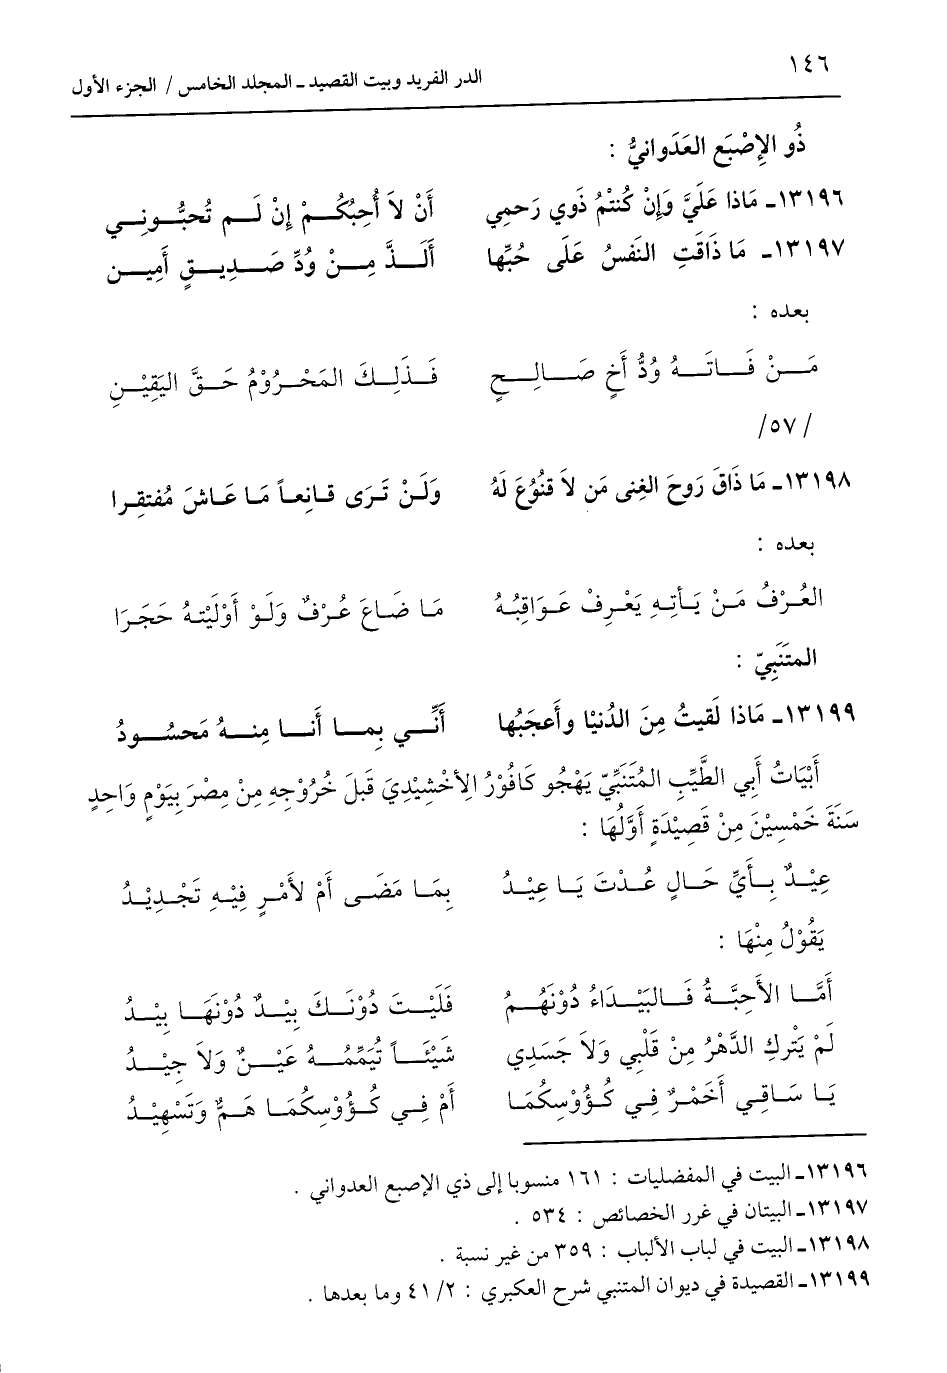 ١٤٦
الدر الفريد وبيت القصيد ـ المجلد الخامس / الجزء الأول
ذُو الإِصْبَعِ العَدَوانيُّ :
١٣١٩٦ـ مَاذا عَلَيَّ وَإِنْ كُنتُمْ ذَوي رَحمِي أَنْ لاَ أُحِبُّكُمْ إِنْ لَم تُحبُّوني
١٣١٩٧ـ مَا ذَاقَتِ النَفسُ عَلَى حُبِّها أَلَذَّ مِنْ وُدِّ صَدِيقٍ أَمِين
بعده :
مَنْ فَاتَهُ وُدُّ أَخٍ صَالِحٍ فَذَلِكَ المَحْرُوْمُ حَقَّ اليَقِيْنِ
/ ٥٧/
١٣١٩٨ـ مَا ذَاقَ رَوحَ الغِنى مَن لاَ قنُوُعَ لَهُ وَلَنْ تَرَى قانِعاً مَا عَاشَ مُفتقِرا
بعده :
العُرْفُ مَنْ يَأتِهِ يَعْرِفْ عَوَاقِبُهُ مَا ضَاعَ عُرْفٌ وَلَوْ أَوْلَيْتهُ حَجَرَا
المتَنَبِيّ :
١٣١٩٩ـ مَاذا لَقيتُ مِنَ الدُنيْا وأَعجَبُها أَنِّي بِما أَنا مِنهُ مَحسُودُ
أَبْيَاتُ أَبِي الطَّيِّبِ المُتَنَبِّيّ يَهْجُو كَافُوْرُ الإِخْشِيْدِيَ قَبلَ خُرُوْجِهِ مِنْ مِصْرَ بِيَوْمٍ وَاحِدٍ
سَنَةَ خَمْسِيْنَ مِنْ قَصِيْدَةٍ أَوَّلُهَا :
عِيْدٌ بِأَيِّ حَالٍ عُدْتَ يَا عِيْدُ بِمَا مَضَى أَمْ لأَمْرٍ فِيْهِ تَجْدِيْدُ
يَقُوْلُ مِنْهَا :
أَمَّا الأَحِبَّةُ فَالبَيْدَاءُ دُوْنَهُمُ فَلَيْتَ دُوْنَكَ بِيْدٌ دُوْنَهَا بِيْدُ
لَمْ يَتْركِ الدَّهْرُ مِنْ قَلْبِي وَلاَ جَسَدِي شَيْئَاً تُيَمِّمُهُ عَيْنٌ وَلاَ جِيْدُ
يَا سَاقِي أَخَمْرٌ فِي كُؤُوْسِكُمَا أَمْ فِي كُؤُوْسِكُمَا هَمٌّ وَتَسْهِيْدُ
١٣١٩٦ـ البيت في المفضليات : ١٦١ منسوبا إلى ذي الإصبع العدواني .
١٣١٩٧ـ البيتان في غرر الخصائص : ٥٣٤ .
١٣١٩٨ـ البيت في لباب الألباب : ٣٥٩ من غير نسبة .
١٣١٩٩ـ القصيدة في ديوان المتنبي شرح العكبري : ٢/ ٤١ وما بعدها .